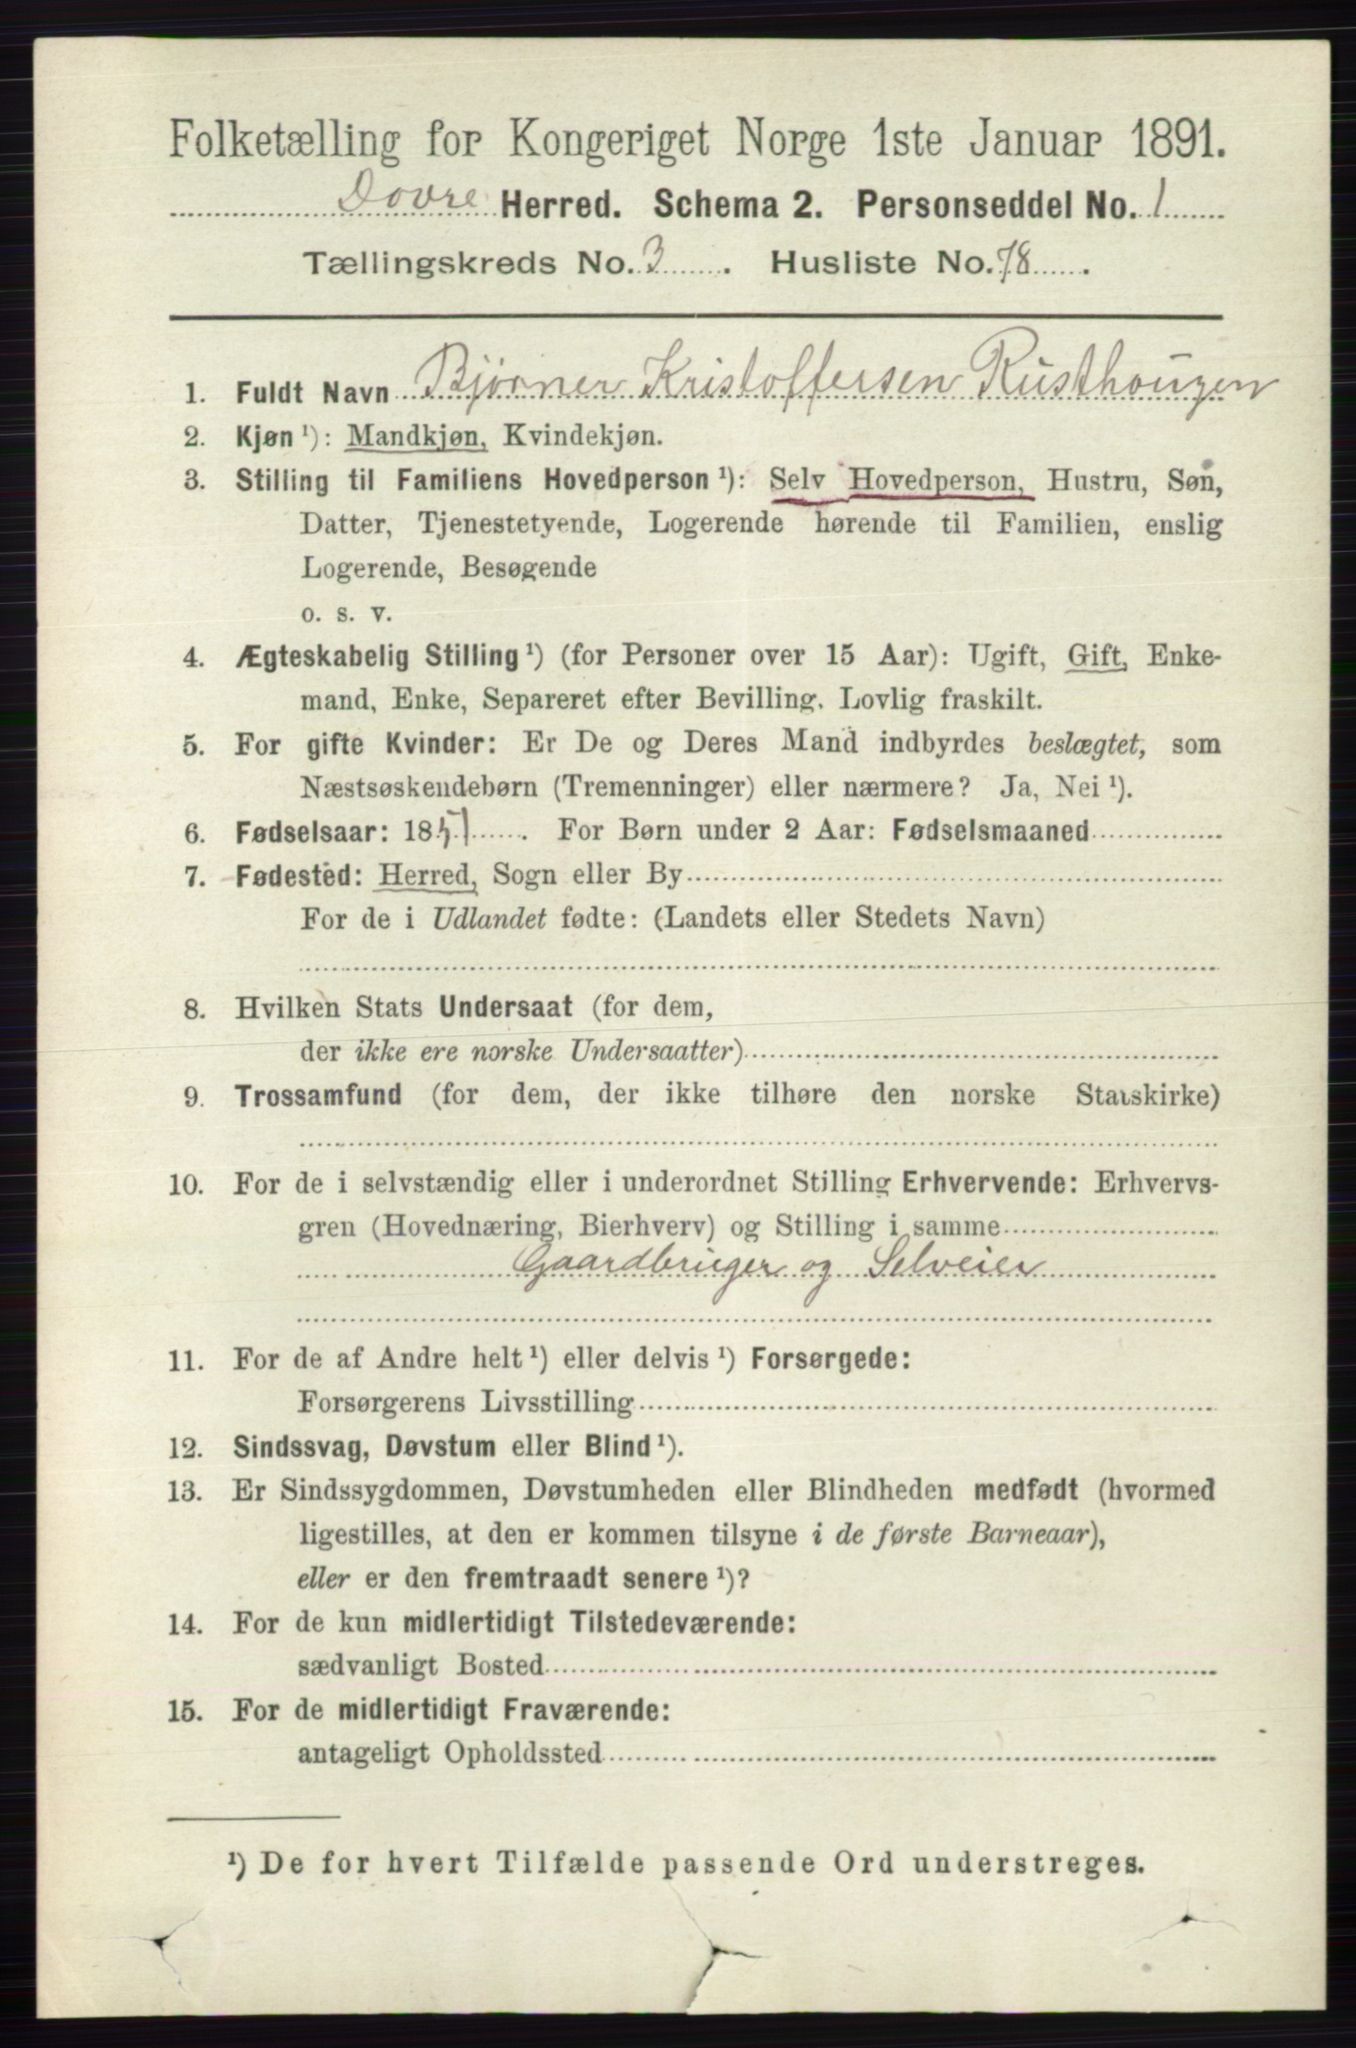 Folketælling for Kongeriget Norge 1ste Januar 1891.
Dovre Herred. Schema 2. Personseddel No. 1
Tællingskreds No. 3. Husliste No. 78.
1. Fuldt Navn Bjørner Kristoffersen Rusthougen
2. Kjøn ¹): Mandkjøn, Kvindekjøn.
3. Stilling til Familiens Hovedperson ¹): Selv Hovedperson, Hustru, Søn,
Datter, Tjenestetyende, Logerende hørende til Familien, enslig
Logerende, Besøgende
o. s. v.
4. Ægteskabelig Stilling ¹) (for Personer over 15 Aar): Ugift, Gift, Enke-
mand, Enke, Separeret efter Bevilling. Lovlig fraskilt.
5. For gifte Kvinder: Er De og Deres Mand indbyrdes beslægtet, som
Næstsøskendebørn (Tremenninger) eller nærmere? Ja, Nei ¹).
6. Fødselsaar: 1851. For Børn under 2 Aar: Fødselsmaaned
7. Fødested: Herred, Sogn eller By
For de i Udlandet fødte: (Landets eller Stedets Navn)
8. Hvilken Stats Undersaat (for dem,
der ikke ere norske Undersaatter)
9. Trossamfund (for dem, der ikke tilhøre den norske Statskirke)
10. For de i selvstændig eller i underordnet Stilling Erhvervende: Erhvervs-
gren (Hovednæring, Bierhverv) og Stilling i samme
Gaardbruger og Selveier
11. For de af Andre helt ¹) eller delvis ¹) Forsørgede:
Forsørgerens Livsstilling
12. Sindssvag, Døvstum eller Blind ¹).
13. Er Sindssygdommen, Døvstumheden eller Blindheden medfødt (hvormed
ligestilles, at den er kommen tilsyne i de første Barneaar),
eller er den fremtraadt senere ¹)?
14. For de kun midlertidigt Tilstedeværende:
sædvanligt Bosted
15. For de midlertidigt Fraværende:
antageligt Opholdssted
¹) De for hvert Tilfælde passende Ord understreges.